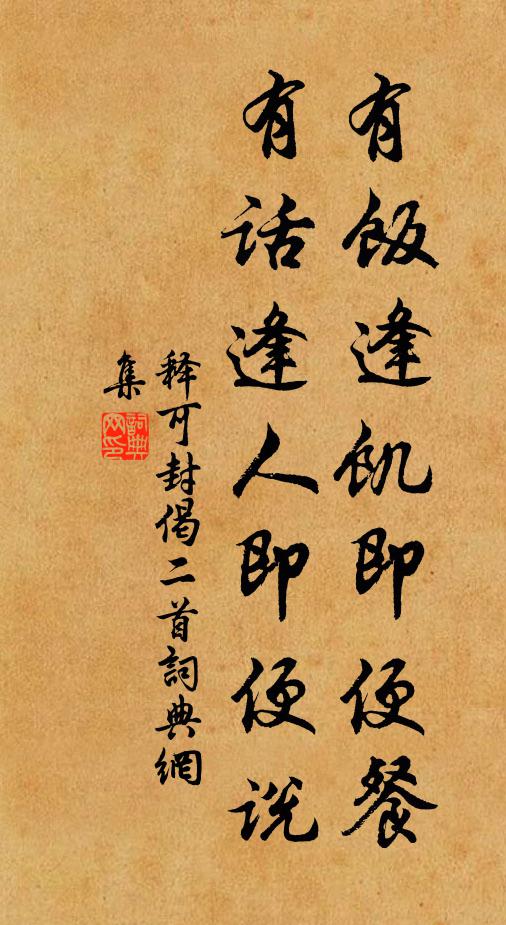 有飯逢飢即便餐
有话逢人即便说
释可封偈二首詞典網
集
詞典网印